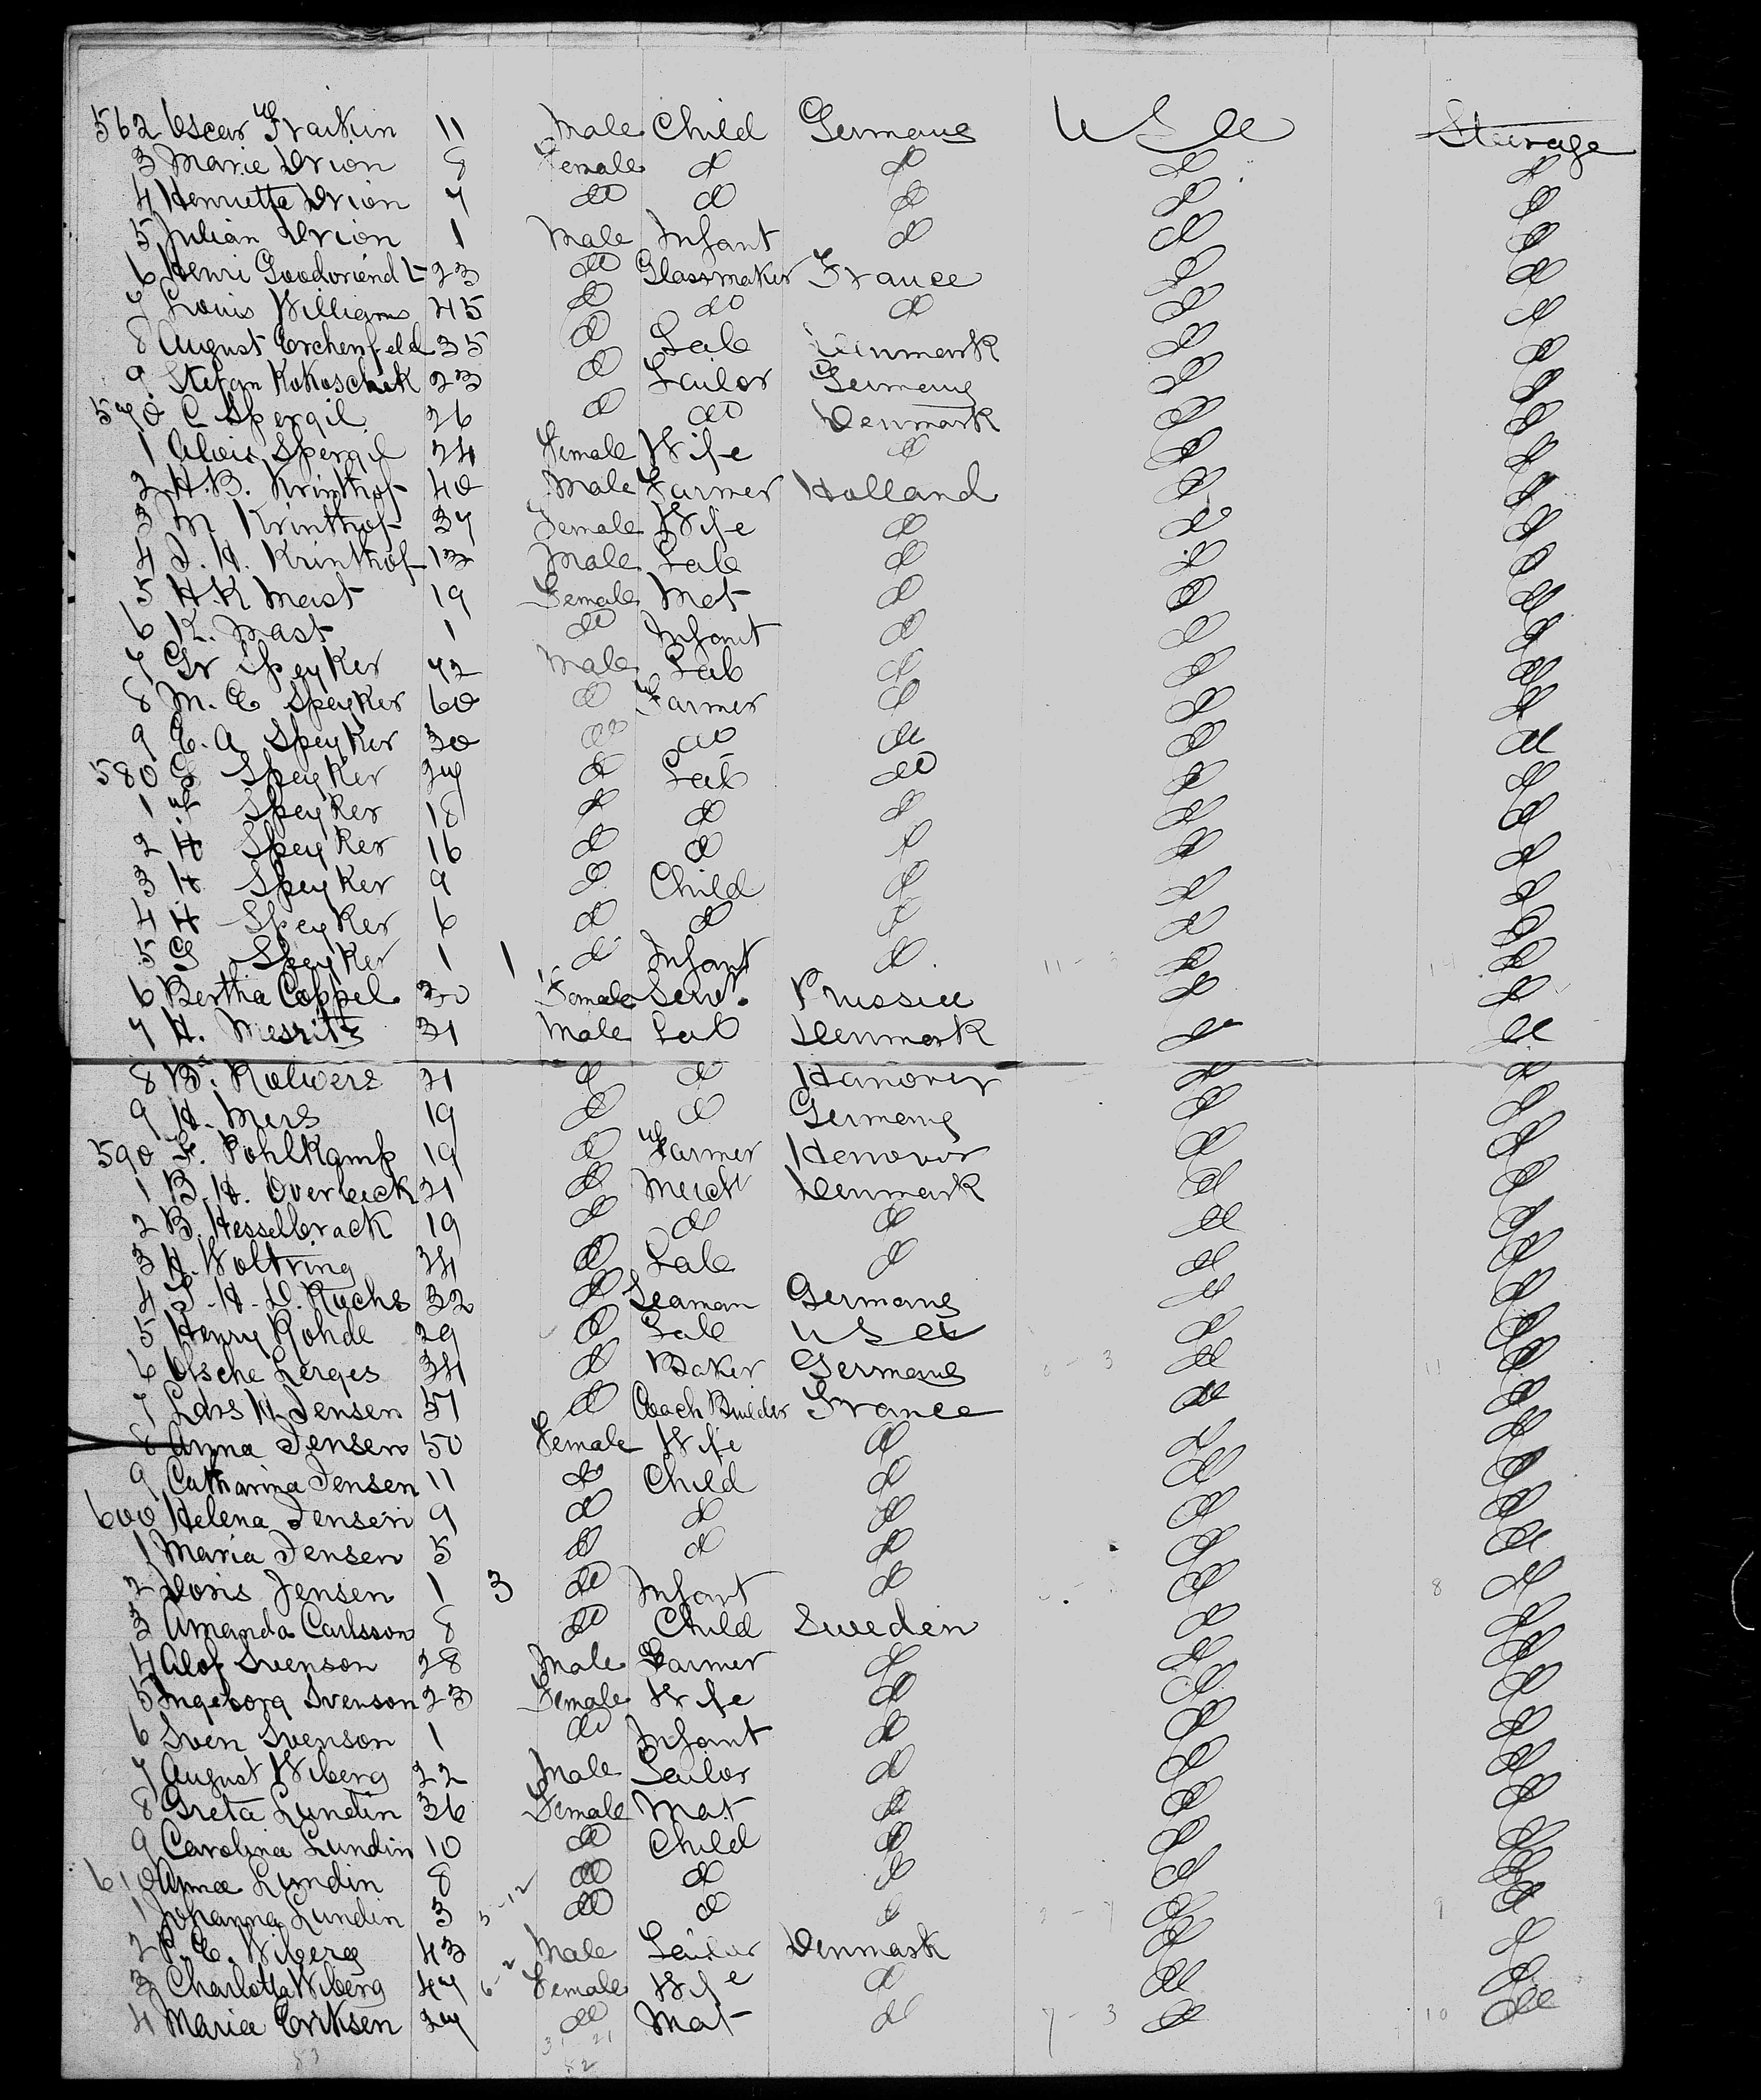 562 Oscar Fraikin 11 Male Child Germany U S A Steerage
3 Marie Drion 8 Female do do do do
4 Henrietta Drion 7 do do do do do
5 Julian Drion 1 Male Infant do do do
6 Henri Goodoriendt 23 do Glassmaker France do do
7 Louis Williams 45 do do do do do
8 August Erchenfeld 35 do Lab Denmark do do
9 Stefan Kokoschek 23 do Tailor Germany do do
570 C Spergil 26 do do Denmark do do
1 Alois Spergil 24 Female Wife do do do
2 H.B. Krinthof 40 Male Farmer Holland do do
3 M Krinthof 37 Female Wife do do do
4 J. H. Krinthof 13 Male Lab do do do
5 H.K Mast 19 Female Mat do do do
6 K. Mast 1 do Infant do do do
7 Gr Speyker 72 Male Lab do do do
8 M. E Speyker 60 do Farmer do do do
9 E. A Speyker 30 do do do do do
580 G Speyker 27 do Lab do do do
1 F Speyker 18 do do do do do
2 H Speyker 16 do do do do do
3 H Speyker 9 do Child do do do
4 H Speyker 6 do do do do do
5 G Speyker 1 1 do Infant do do do
6 Bertha Coppel 30 Female Serv. Prussia do do
7 H. Mesritz 31 Male Lab Denmark do do
8 B. Rolwers 21 do do Hanover do do
9 H. Mers 19 do do Germany do do
590 F. Pohlkamp 19 do Farmer Hanover do do
1 B. H. Overbeick 21 do Mercht Denmark do do
2 B. Hesselbrack 19 do do do do do
3 H. Woltring 34 do Lab do do do
4 J. H. D. Ruchs 32 do Seaman Germany do do
5 Henry Rohde 29 do Lab U S A do do
6 Osche Lerges 34 do Baker Germany do do
7 Lars H. Jensen 51 do Coach Builder France do do
8 Anna Jensen 50 Female Wife do do do
9 Catharina Jensen 11 do Child do do do
600 Helena Jensen 9 do do do do do
1 Maria Jensen 5 do do do do do
2 Doris Jensen 1 3 do Infant do do 8 do
3 Amanda Carlsson 8 do Child Sweden do do
4 Alof Svenson 28 Male Farmer do do do
5 Ingeborg Svenson 23 Female Wife do do do
6 Sven Svenson 1 do Infant do do do
7 August Wiberg 22 Male Sailor do do do
8 Greta Lundin 36 Female Mat do do do
9 Carolina Lundin 10 do Child do do do
610 Anna Lundin 8 do do do do do
1 Johanna Lundin 3 3-12 do do do do 9 do
2 P. E. Wiberg 43 Male Sailor Denmark do do
3 Charlotta Wiberg 47 6-2 Female Wife do do do
4 Maria Eriksen 27 do Mat do 7-3 do 10 do
31 21
83 52